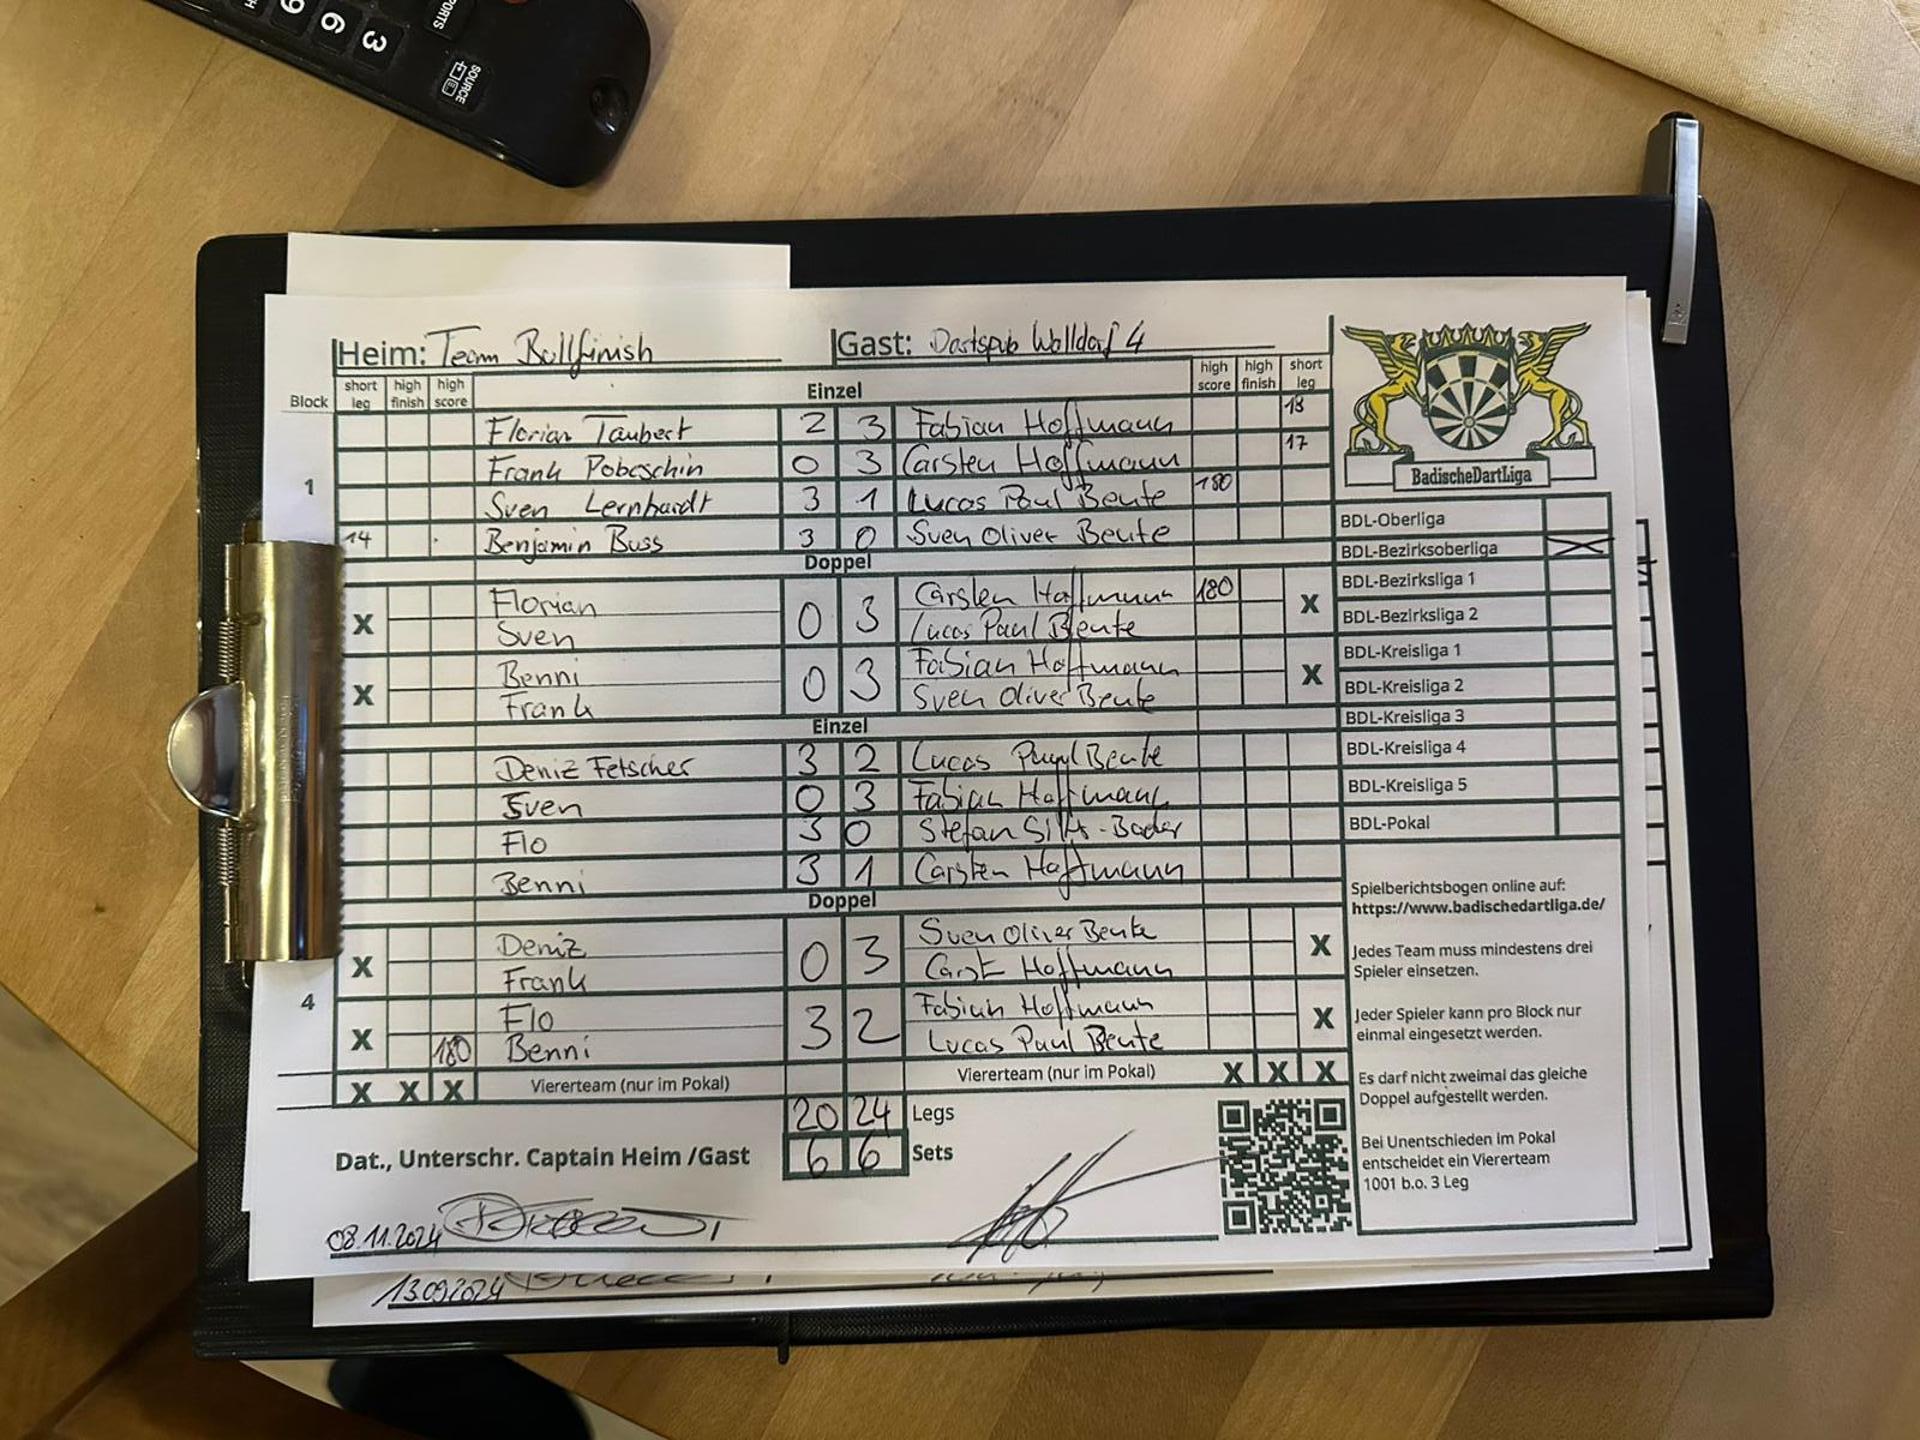 PORTS
H 9 6 3
SOURCE
Heim: Team Bullfinish Gast: Dartspub Walldorf 4
Block short leg high finish high score Einzel high score high finish short leg
Florian Taubert 2 3 Fabian Hoffmann 18
Frank Pobeschin 0 3 Carsten Hoffmann 17
1 Sven Lernhardt 3 1 Lucas Paul Beute 180
14 Benjamin Buss 3 0 Sven Oliver Beute
Doppel
X Florian 0 3 Carsten Hoffmann 180 X
Sven Lucas Paul Beute
X Benni 0 3 Fabian Hoffmann X
Frank Sven Oliver Beute
Einzel
Deniz Fetscher 3 2 Lucas Paul Beute
Sven 0 3 Fabian Hoffmann
Flo 3 0 Stefan
Benni 3 1 Carsten Hoffmann
Doppel
X Deniz 0 3 Sven Oliver Beute X
Frank Carst Hoffmann
4
X Flo 3 2 Fabian Hoffmann X
180 Benni Lucas Paul Beute
X X X Vierer­team (nur im Pokal) Viererteam (nur im Pokal) X X X
20 24 Legs
Dat., Unterschr. Captain Heim /Gast 6 6 Sets
08.11.2024
13.09.2024
BadischeDartLiga
BDL-Oberliga
BDL-Bezirksoberliga X
BDL-Bezirksliga 1
BDL-Bezirksliga 2
BDL-Kreisliga 1
BDL-Kreisliga 2
BDL-Kreisliga 3
BDL-Kreisliga 4
BDL-Kreisliga 5
BDL-Pokal
Spielberichtsbogen online auf:
https://www.badischedartliga.de/
Jedes Team muss mindestens drei
Spieler einsetzen.
Jeder Spieler kann pro Block nur
einmal eingesetzt werden.
Es darf nicht zweimal das gleiche
Doppel aufgestellt werden.
Bei Unentschieden im Pokal
entscheidet ein Viererteam
1001 b.o. 3 Leg